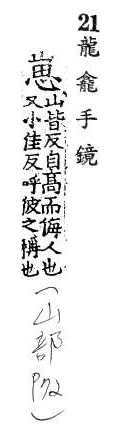 21 龍龕手鏡
崽 山皆反自髙而侮人也
又小佳反呼彼之稱也
(山部 )